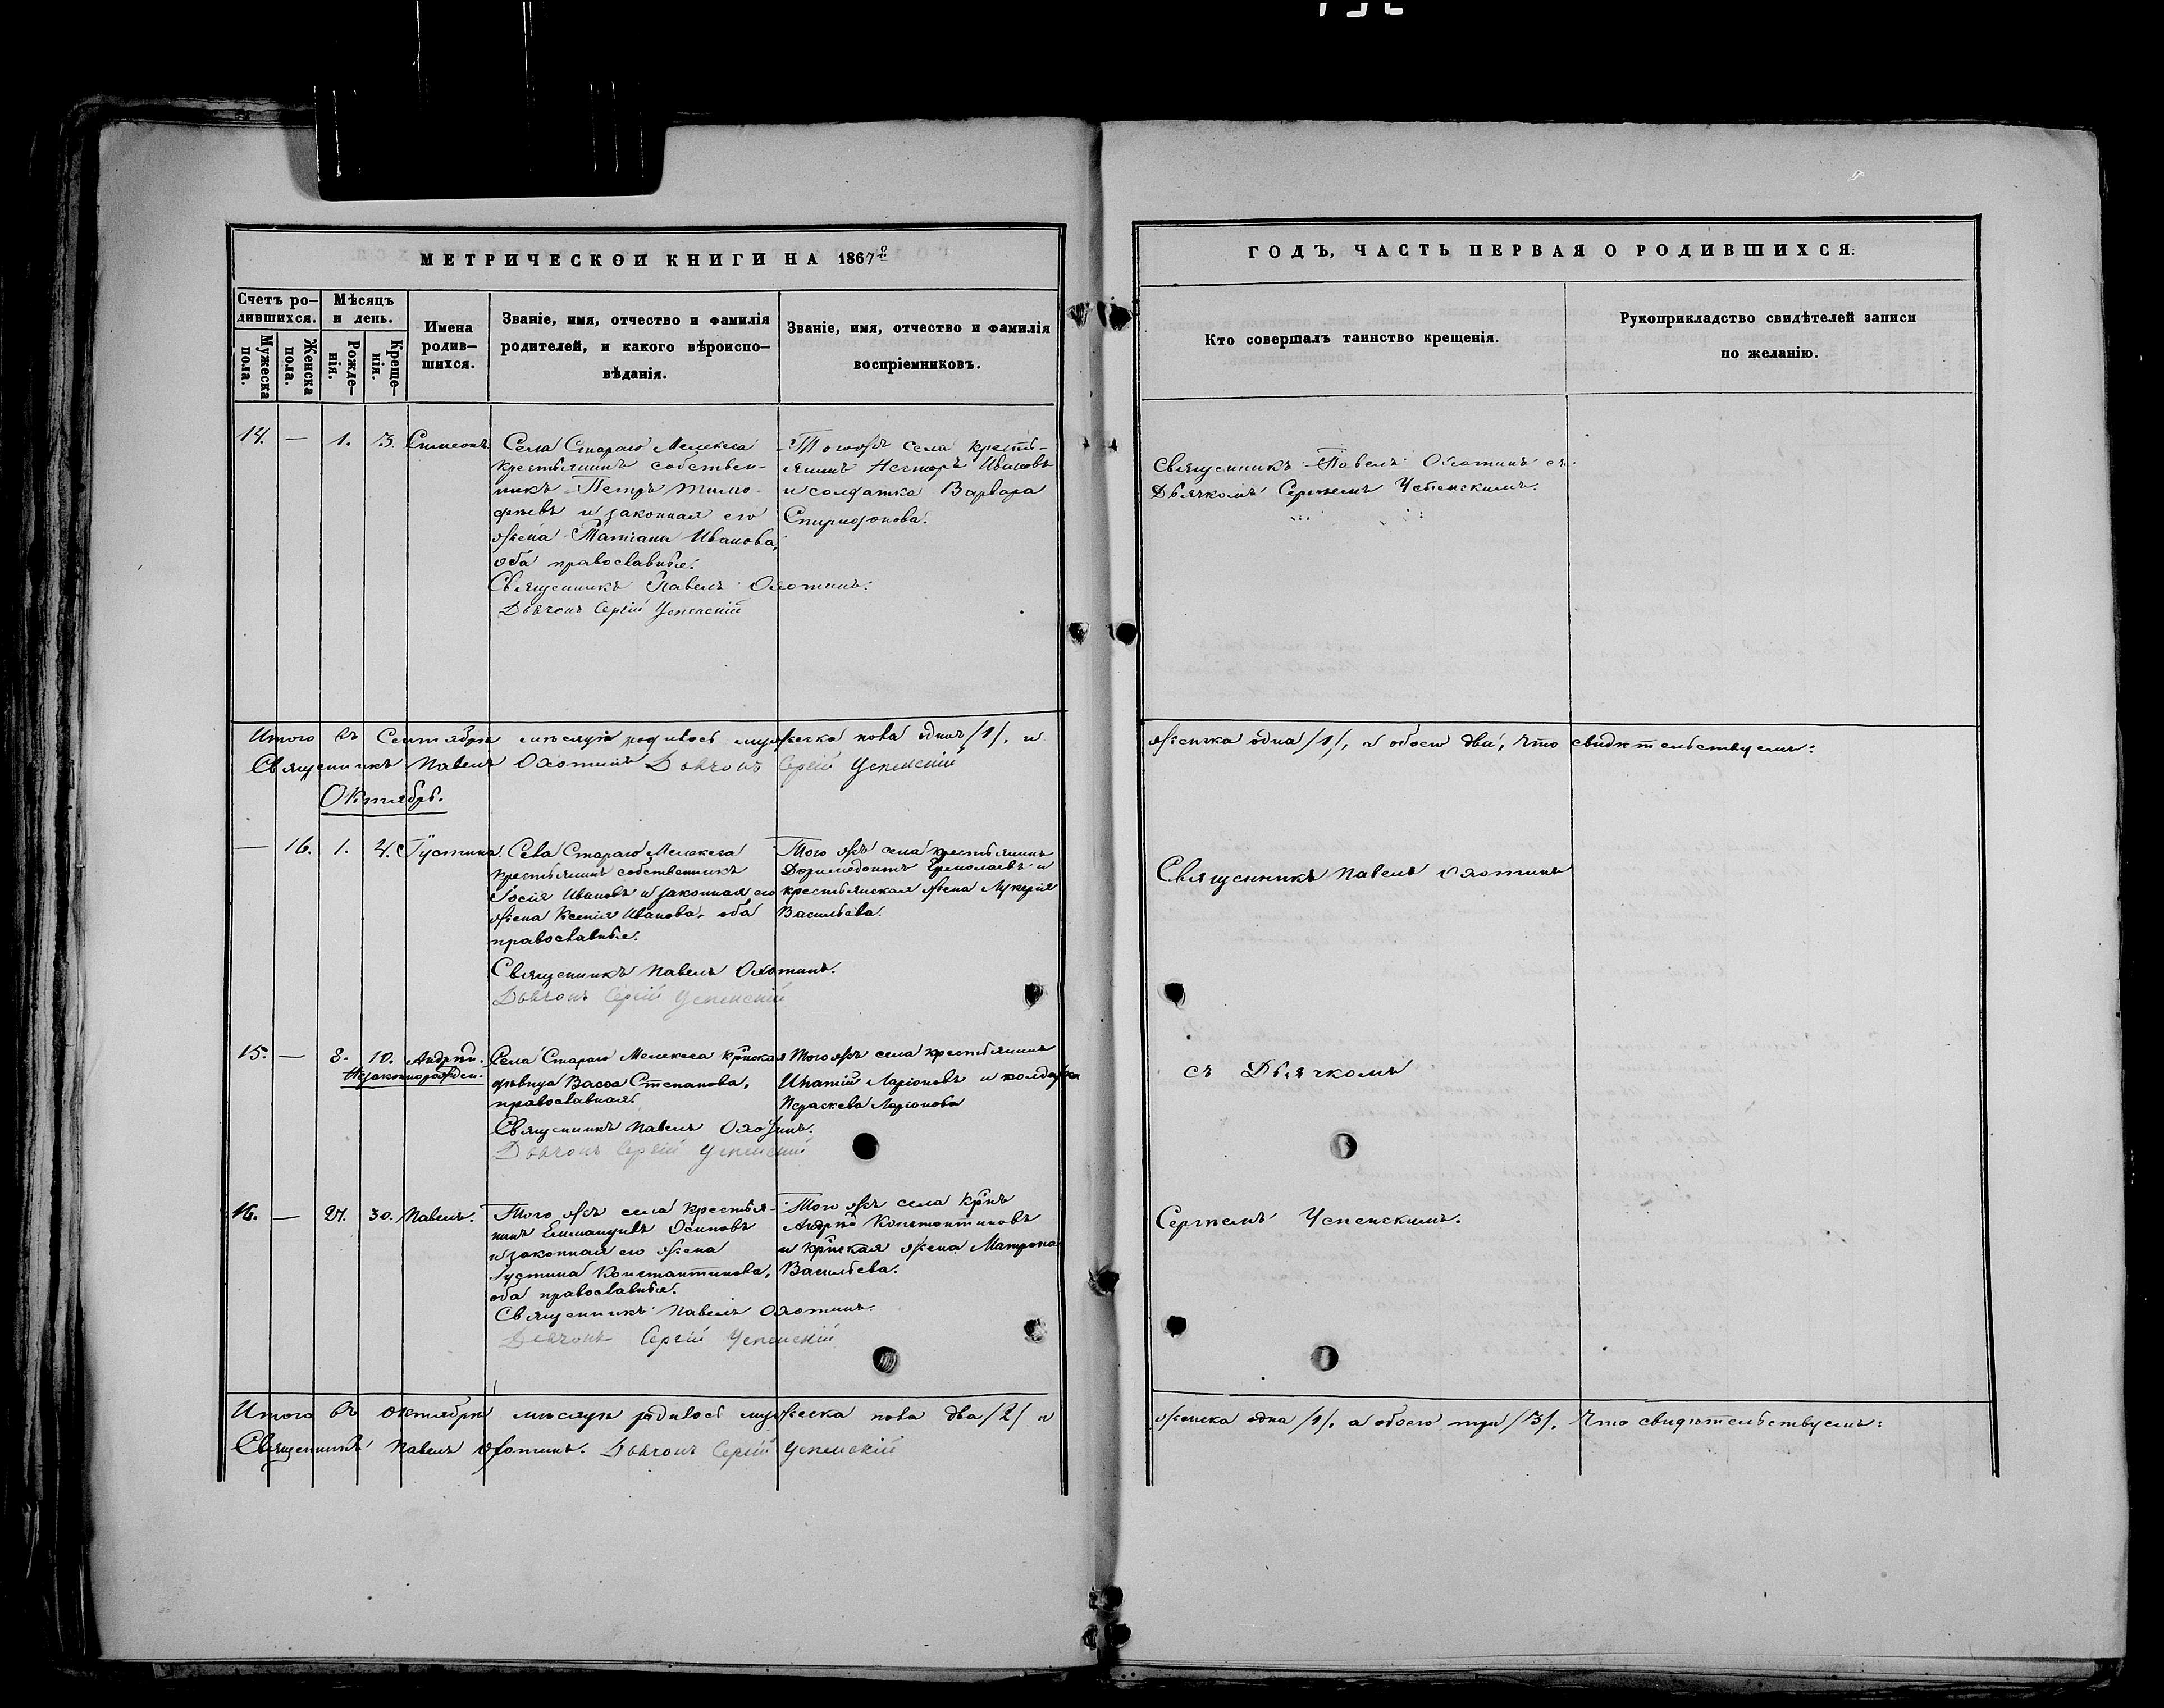 МЕТРИЧЕСКОЙ КНИГИ НА 1867й
Счетъ ро-
дившихся.
Мужеска
пола.
Женска
пола.
Мѣсяцъ
и день.
Рожде-
нія.
Креще-
нія.
Имена
родив-
шихся.
Званіе, имя, отчество и фамилія
родителей, и какого вѣроиспо-
вѣданія.
Званіе, имя, отчество и фамилія
воспріемниковъ.
14. — 1. 3. Симеонъ.
Села Стараго Мелекеса
крестьянинъ собствен-
никъ Петръ Тимо-
фѣевъ и законная его
жена Татіана Иванова,
оба православные.
Священникъ Павелъ Охотинъ.
Дьячокъ Сергій Успенскій
Тогожъ села кресть-
янинъ Несторъ Ивановъ
и солдатка Варвара
Спиридонова.
Итого въ Сентябрѣ мѣсяцѣ родилось мужеска пола одинъ /1/, и
Священникъ Павелъ Охотинъ Дьячокъ Сергій Успенскій
Октябрь.
— 16. 1. 4. Іустина.
Села Стараго Мелекеса
крестьянинъ собственникъ
Іосія Ивановъ и законная его
жена Ксенія Иванова, оба
православные.
Священникъ Павелъ Охотинъ.
Дьячокъ Сергій Успенскій
Того жъ села крестьянинъ
Доримедонтъ Ермолаевъ и
крестьянская жена Лукерія
Васильева.
15. — 8. 10. Андрей.
Незаконнорожден.
Села Стараго Мелекеса кр͠нская
дѣвица Васса Степанова,
православная.
Священникъ Павелъ Охотинъ.
Дьячокъ Сергій Успенскій
Того жъ села крестьянинъ
Ипатій Ларіоновъ и солдатка
Параскева Ларіонова
16. — 27. 30. Павелъ.
Того жъ села крестья-
нинъ Еммануилъ Осиповъ
и законная его жена
Іустина Константинова,
оба православные.
Священникъ Павелъ Охотинъ.
Дьячокъ Сергій Успенскій
Того жъ села кр͠нъ
Андрей Константиновъ
и кр͠нская жена Матрона
Васильева.
Итого въ Октябрѣ мѣсяцѣ родилось мужеска пола два /2/ и
Священникъ Павелъ Охотинъ. Дьячокъ Сергій Успенскій
ГОДЪ, ЧАСТЬ ПЕРВАЯ О РОДИВШИХСЯ:
Кто совершалъ таинство крещенія.
Рукоприкладство свидѣтелей записи
по желанію.
Священникъ Павелъ Охотинъ съ
Дьячкомъ Сергѣемъ Успенскимъ.
женска одна /1/, а обоего два, что свидѣтельствуемъ:
Священникъ Павелъ Охотинъ
съ Дьячкомъ
Сергѣемъ Успенскимъ.
женска одна /1/, а обоего три /3/. Что свидѣтельствуемъ: